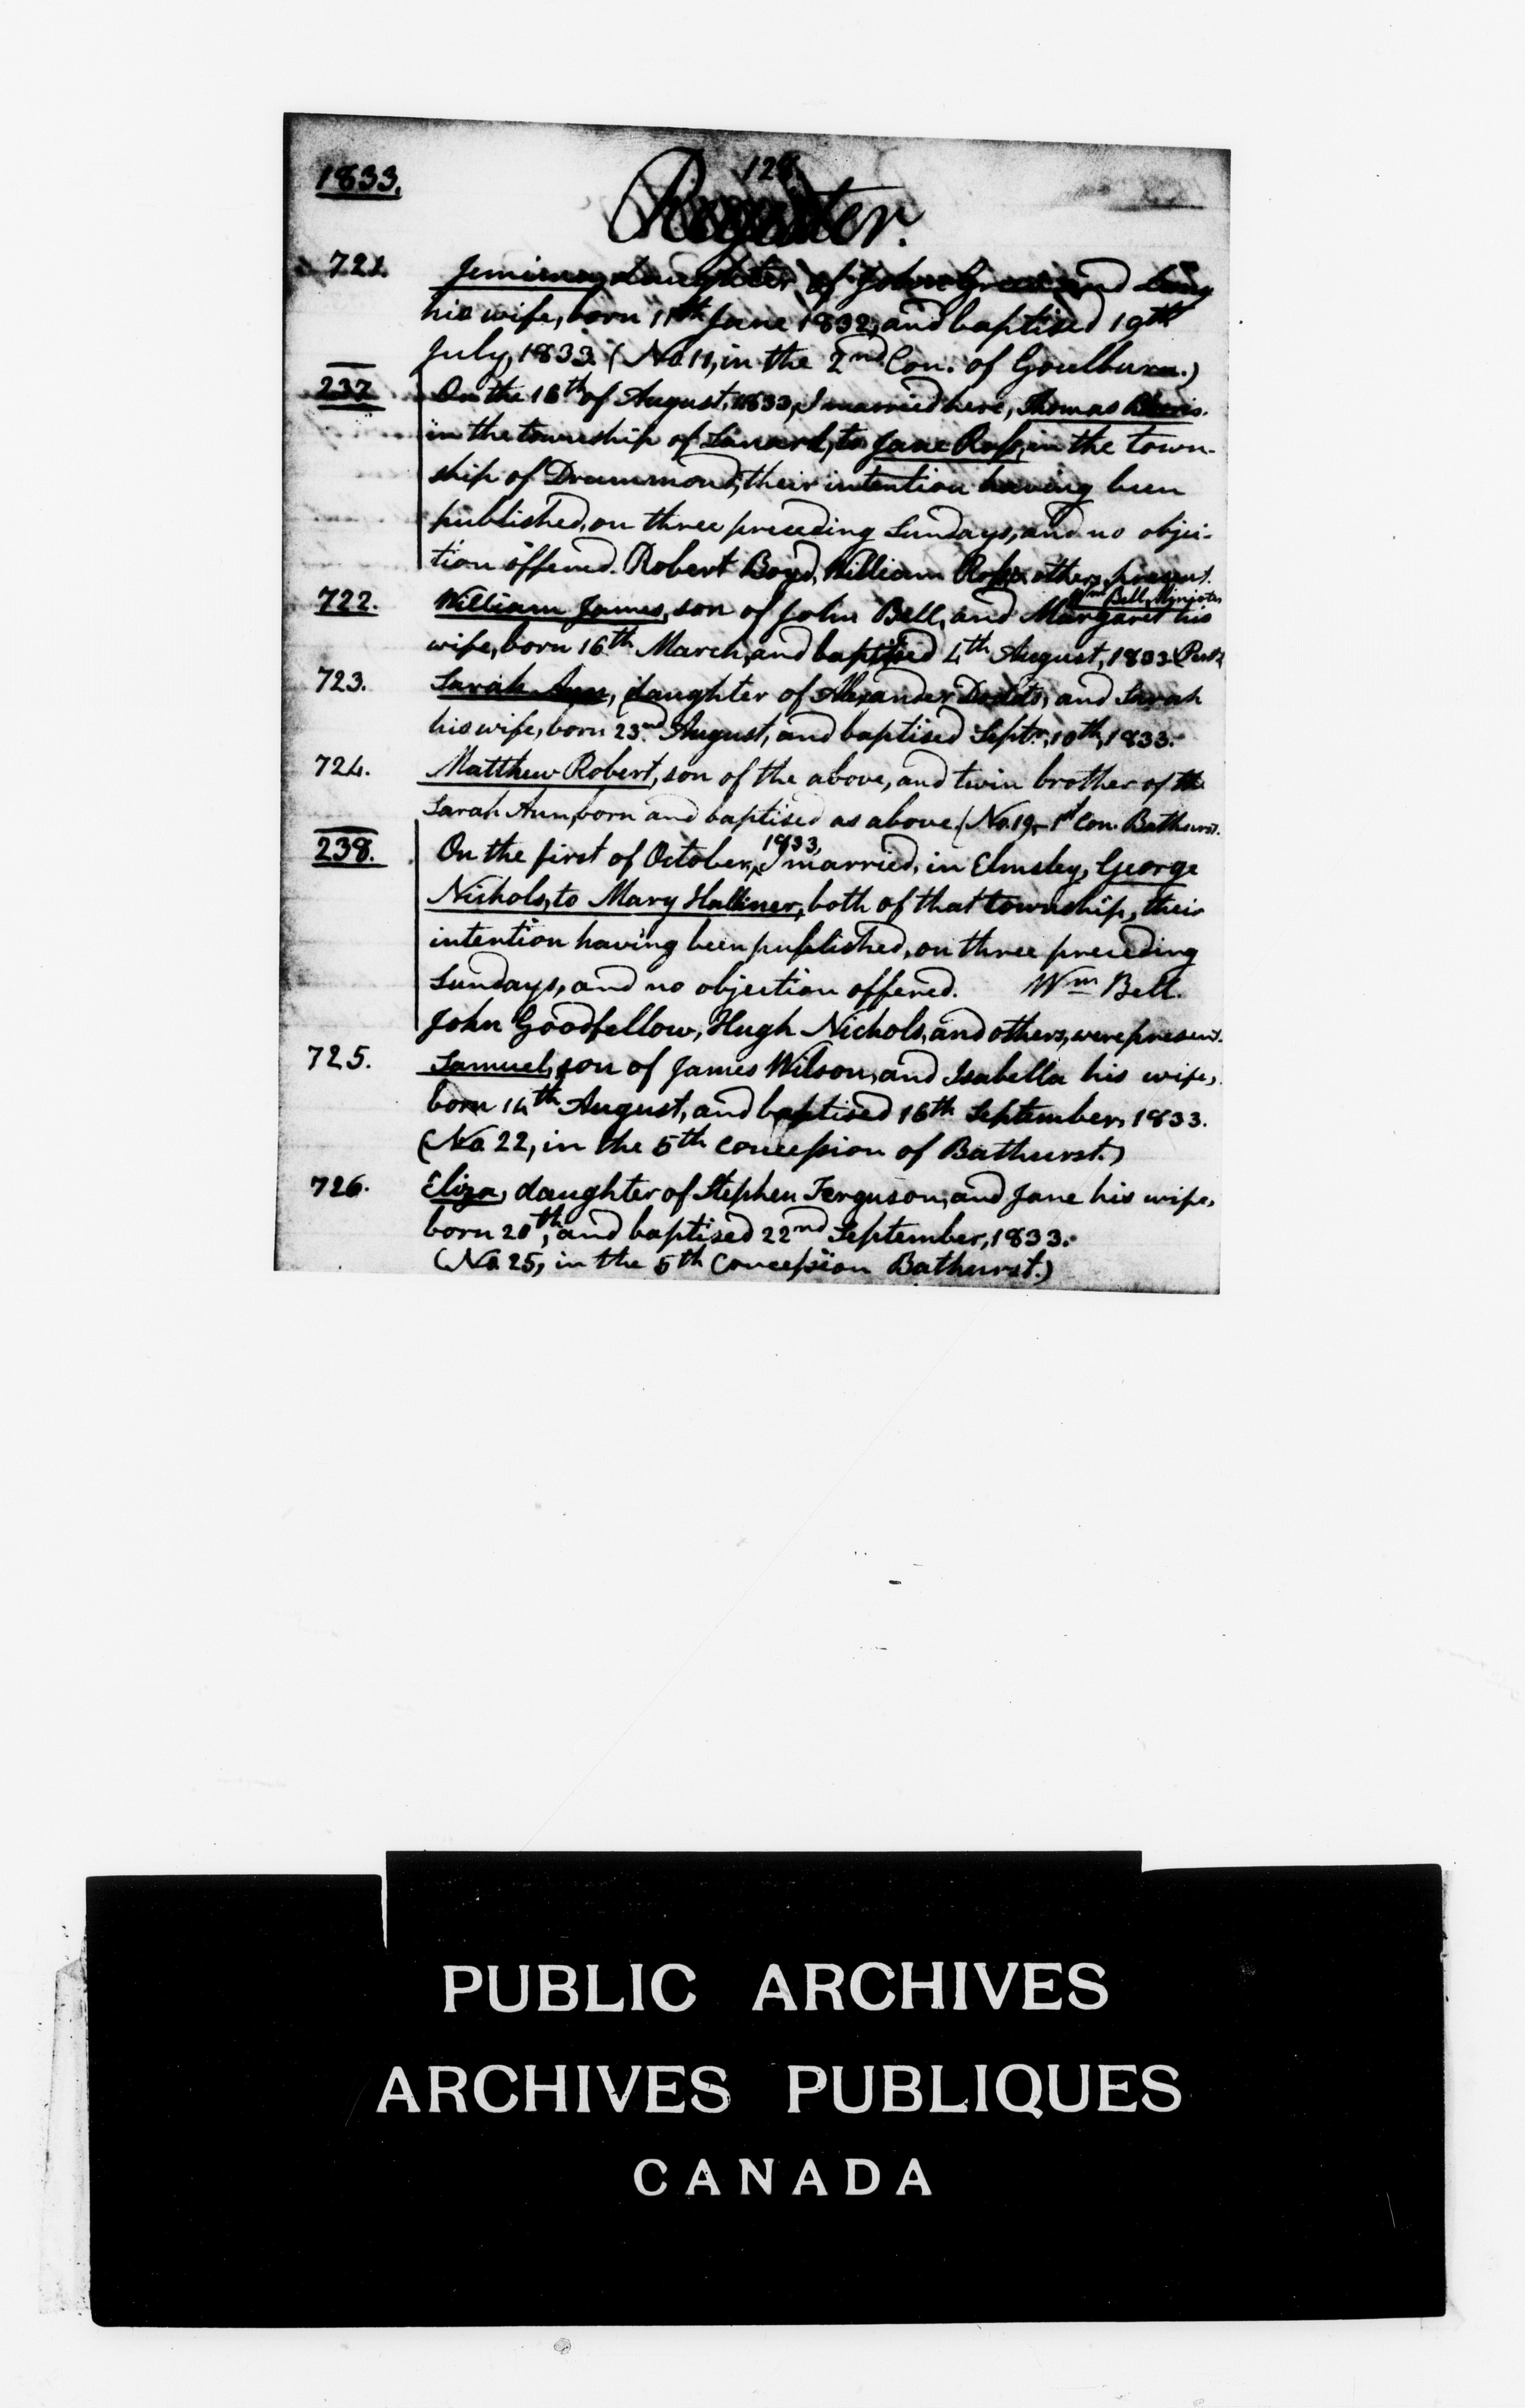 1833.
128
Register.
721. Jemima, daughter of John Green and
his wife, born 11th June 1832, and baptised 19th
July, 1833. (No. 11, in the 2nd Con. of Goulburn.)
237. On the 16th of August, 1833, I married here, Thomas
in the township of Lanark, to Jane Ross, in the town-
ship of Drummond, their intention having been
published, on three preceding Sundays, and no objec-
tion offered. Robert Boyd, William Ross & others, present.
Wm Bell, Minister
722. William James, son of John Bell, and Margaret his
wife, born 16th March, and baptised 4th August, 1833. Perth
723. Sarah Ann, daughter of Alexander Dodds, and Sarah
his wife, born 23rd August, and baptised Septr. 10th, 1833.
724. Matthew Robert, son of the above, and twin brother of the
Sarah Ann, born and baptised as above. (No. 19, 1st Con. Bathurst.
238. On the first of October, 1833, I married, in Elmsley, George
Nichols, to Mary Halliner, both of that township, their
intention having been published, on three preceding
Sundays, and no objection offered. Wm Bell.
John Goodfellow, Hugh Nichols, and others, were present.
725. Samuel, son of James Wilson, and Isabella his wife,
born 14th August, and baptised 16th September, 1833.
(No. 22, in the 5th Concession of Bathurst.)
726. Eliza, daughter of Stephen Ferguson, and Jane his wife,
born 20th, and baptised 22nd September, 1833.
(No. 25, in the 5th Concession Bathurst.)
PUBLIC ARCHIVES
ARCHIVES PUBLIQUES
CANADA